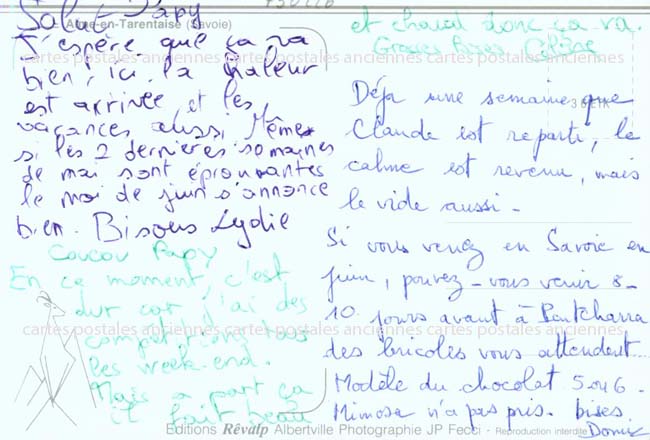 Aime-en-Tarentaise (Savoie)
Salut Papy
J'espère que ça va
bien, ici la chaleur
est arrivée et les
vacances aussi. Même
si les 2 dernières semaines
de mai sont éprouvantes
le mois de juin s'annonce
bien. Bisous Lydie
Coucou Papy
En ce moment, c'est
dur car j'ai des
compétitions tous
les week-end.
Mais a part ça
il fait beau
et chaud donc ça va.
Grosses Bises
Déja une semaine que
Claude est reparti, le
calme est revenu, mais
le vide aussi -
Si vous venez en Savoie en
juin, pouvez-vous venir 8-
10 jours avant à Pontcharra
des bricoles vous attendent...
Modèle du chocolat 5 ou 6.
Mimosa n'a pas pris. bises.
cartes postales anciennes cartes postales anciennes cartes postales anciennes
cartes postales anciennes cartes postales anciennes cartes postales anciennes
Editions Révalp Albertville Photographie JP Fecci - Reproduction interdite